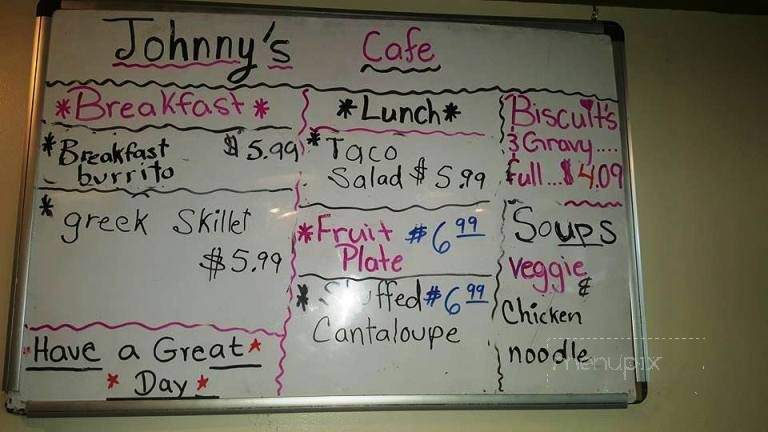 Johnny's Cafe
*Breakfast*
*Breakfast $5.99
burrito
*greek Skillet
$5.99
Have a Great*
*Day*
*Lunch*
*Taco
Salad $5.99
*Fruit $6.99
Plate
*Stuffed $6.99
Cantaloupe
Biscuit's
& Gravy....
full...$4.09
Soups
veggie
&
Chicken
noodle
menupix